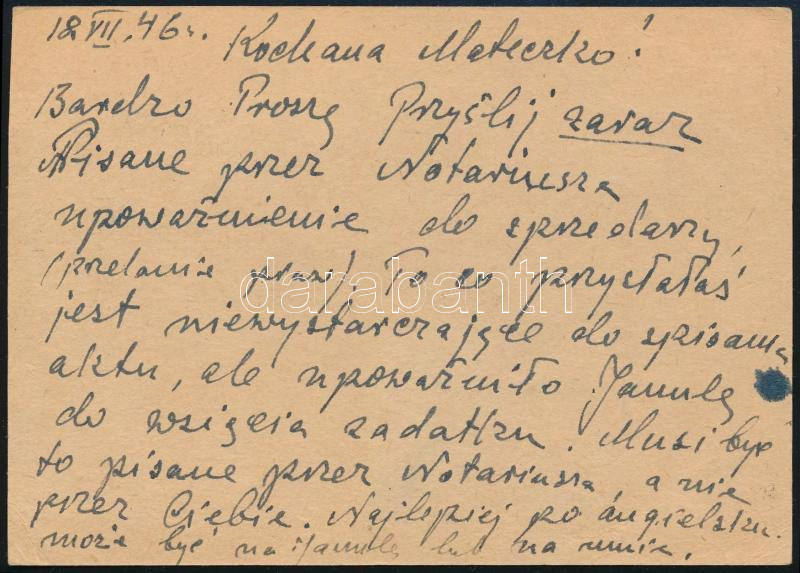 18 VII. 46 r.
Kochana Mateczko!
Bardzo Proszę Przyślij zaraz
Pisane przez Notariusza
upoważnienie do sprzedarzy,
(przelanie praw). To co przysłałaś
jest niewystarczające do spisania
aktu, ale upoważniło Jamulę
do wzięcia zadatku. Musi być
to pisane przez Notariusza, a nie
przez Ciebie. Najlepiej po angielsku.
może być na Jamulę lub na mnie.
darabanth